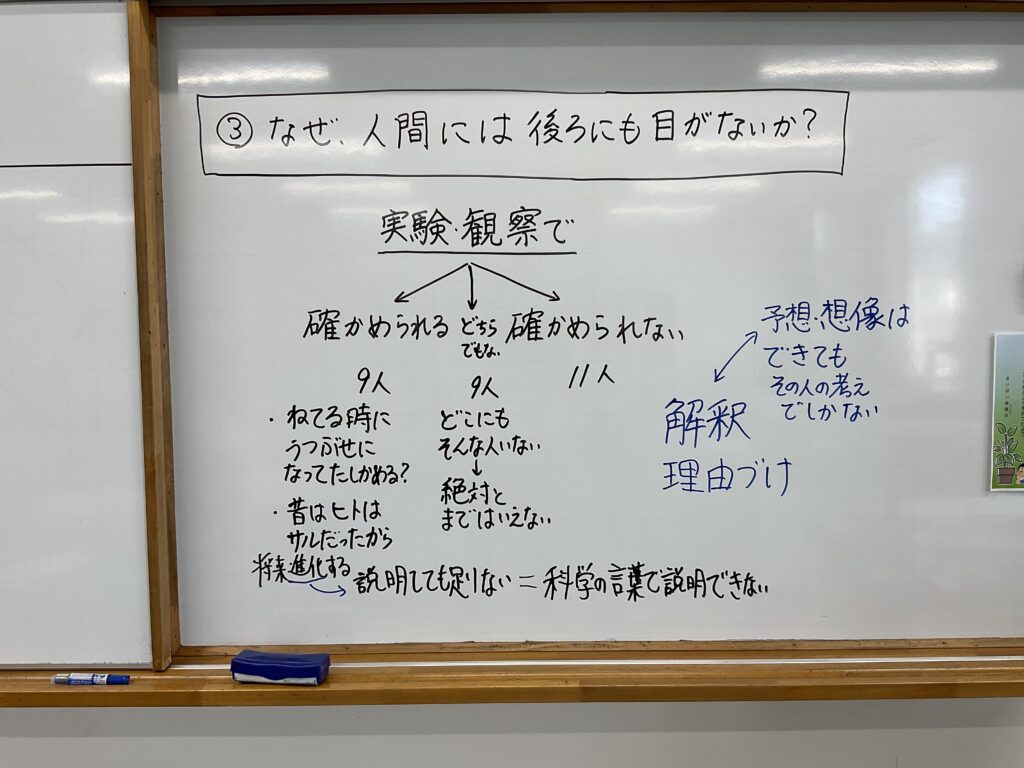 ③ なぜ、人間には 後ろにも目がないか？
実験・観察で
確かめられる
9人
・ねてる時に
うつぶせに
なってたしかめる？
・昔はヒトは
サルだったから
将来進化する
どちら
でもない
9人
どこにも
そんな人いない
↓
絶対と
まではいえない
確かめられない
11人
説明しても足りない＝科学の言葉で説明できない
予想・想像は
できても
その人の考え
でしかない
解釈
理由づけ